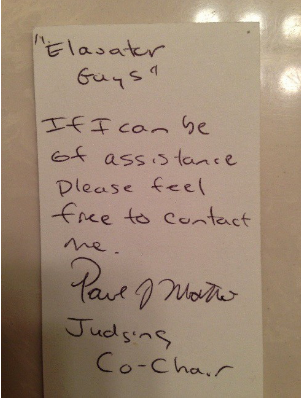 "Elavator
Guys"
If I can be
of assistance
please feel
free to contact
me.
Paul J
Judging
Co-Chair